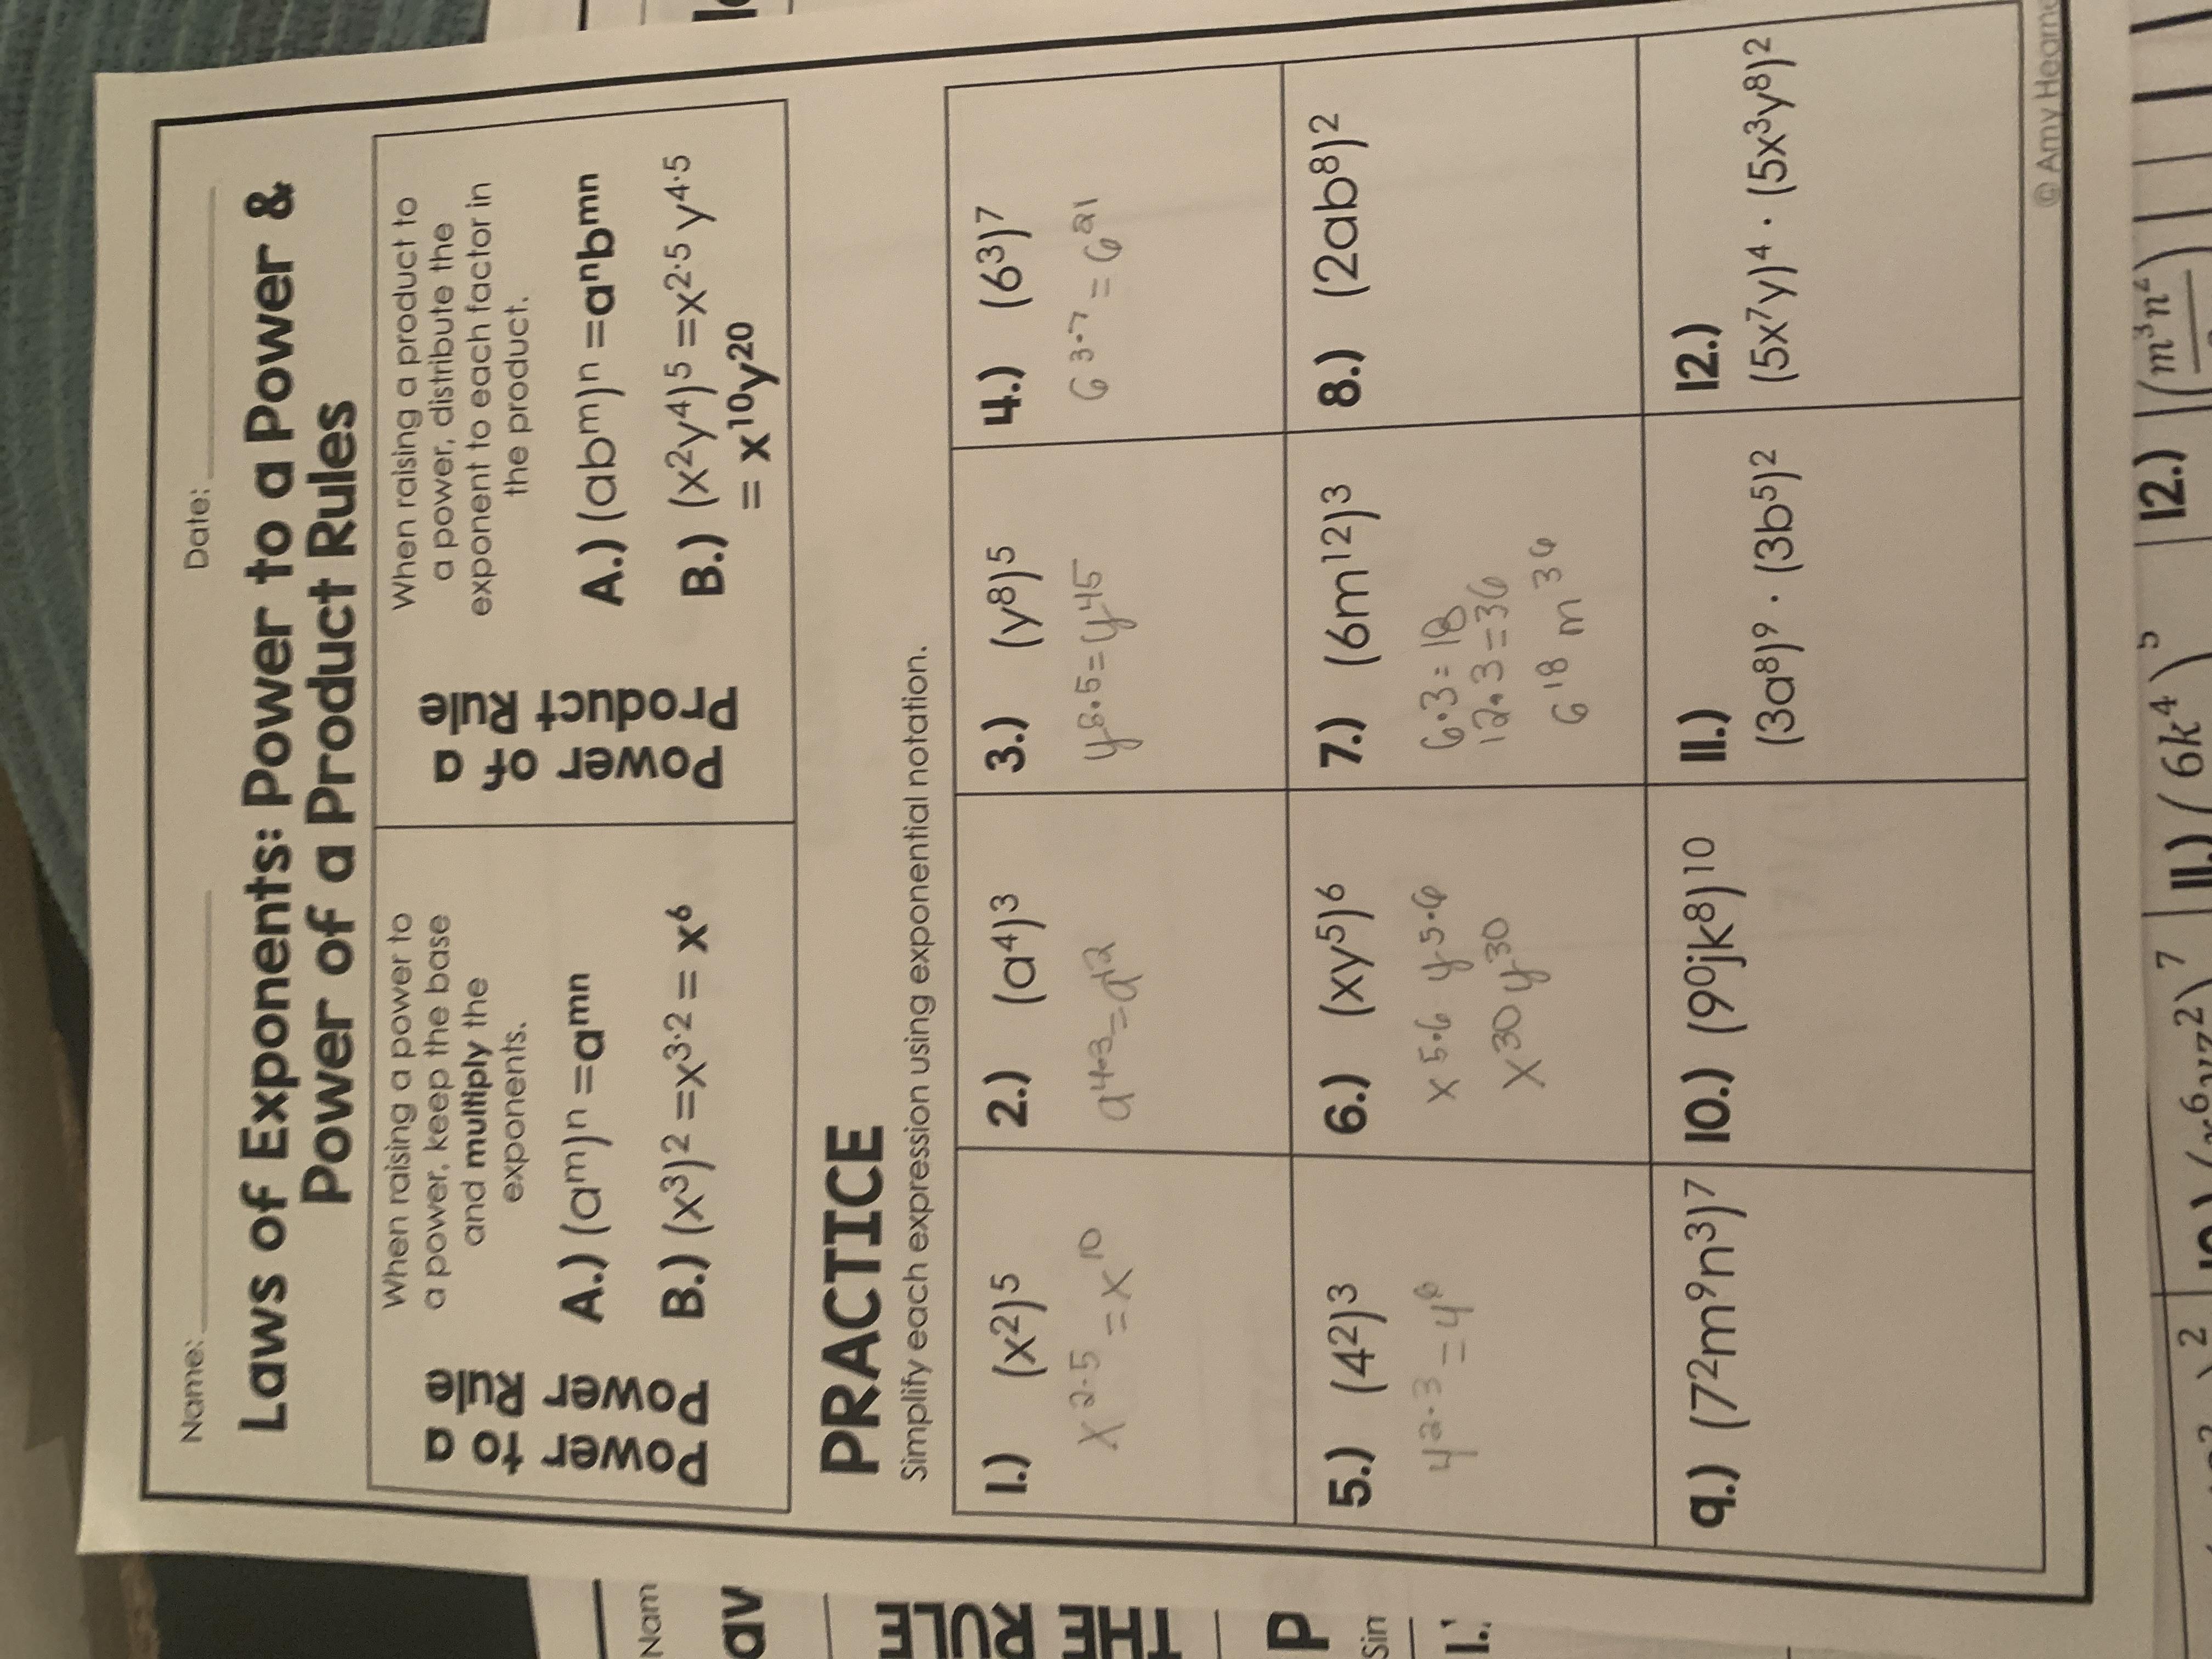 Name: Date:
Laws of Exponents: Power to a Power &
Power of a Product Rules
Power
to a
Power
Rule
When raising a power to
a power, keep the base
and multiply the
exponents.
A.) (a^m)^n =a^mn
B.) (x^3)^2 =x^3·2 = x^6
Power
of a
Product
Rule
When raising a product to
a power, distribute the
exponent to each factor in
the product.
A.) (ab^m)^n =a^nb^mn
B.) (x^2y^4)^5 =x^2·5 y^4·5
= x^10y^20
PRACTICE
Simplify each expression using exponential notation.
1.) (x^2)^5
x^2·5 = x^10
2.) (a^4)^3
a^4·3=a^12
3.) (y^8)^5
y^8·5=y^45
4.) (6^3)^7
6^3·7 = 6^21
5.) (4^2)^3
4^2·3 = 4^6
6.) (xy^5)^6
x^5·6 y^5·6
x^30 y^30
7.) (6m^12)^3
6·3=18
12·3=36
6^18 m^36
8.) (2ab^8)^2
9.) (7^2m^9n^3)^7
10.) (9^0jk^8)^10
11.)
(3a^8)^9 · (3b^5)^2
12.)
(5x^7y)^4 · (5x^3y^8)^2
© Amy Hearn
Nam
av
RULE
THE
P
Sin
1.
11.) (6k^4)^5
12.) (m^3n^2)